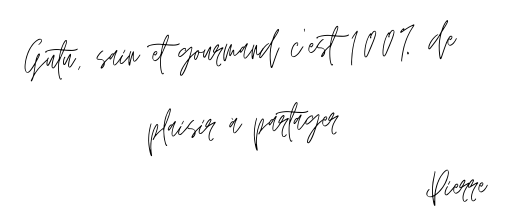 Gutu, sain et gourmand c'est 100% de
plaisir a partager
Pierre